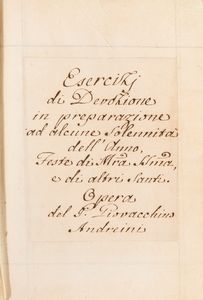 Esercizj
di Devozione
in preparazione
ad alcune Solennita
dell'Anno,
Feste di Mra SSma,
e di altri Santi.
Opera
del P. Giovacchino
Andreini